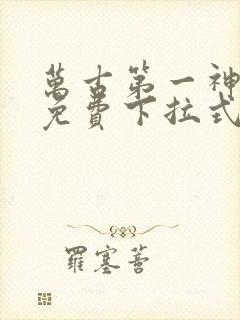 萬古第一神
免費下拉式
羅塞菩